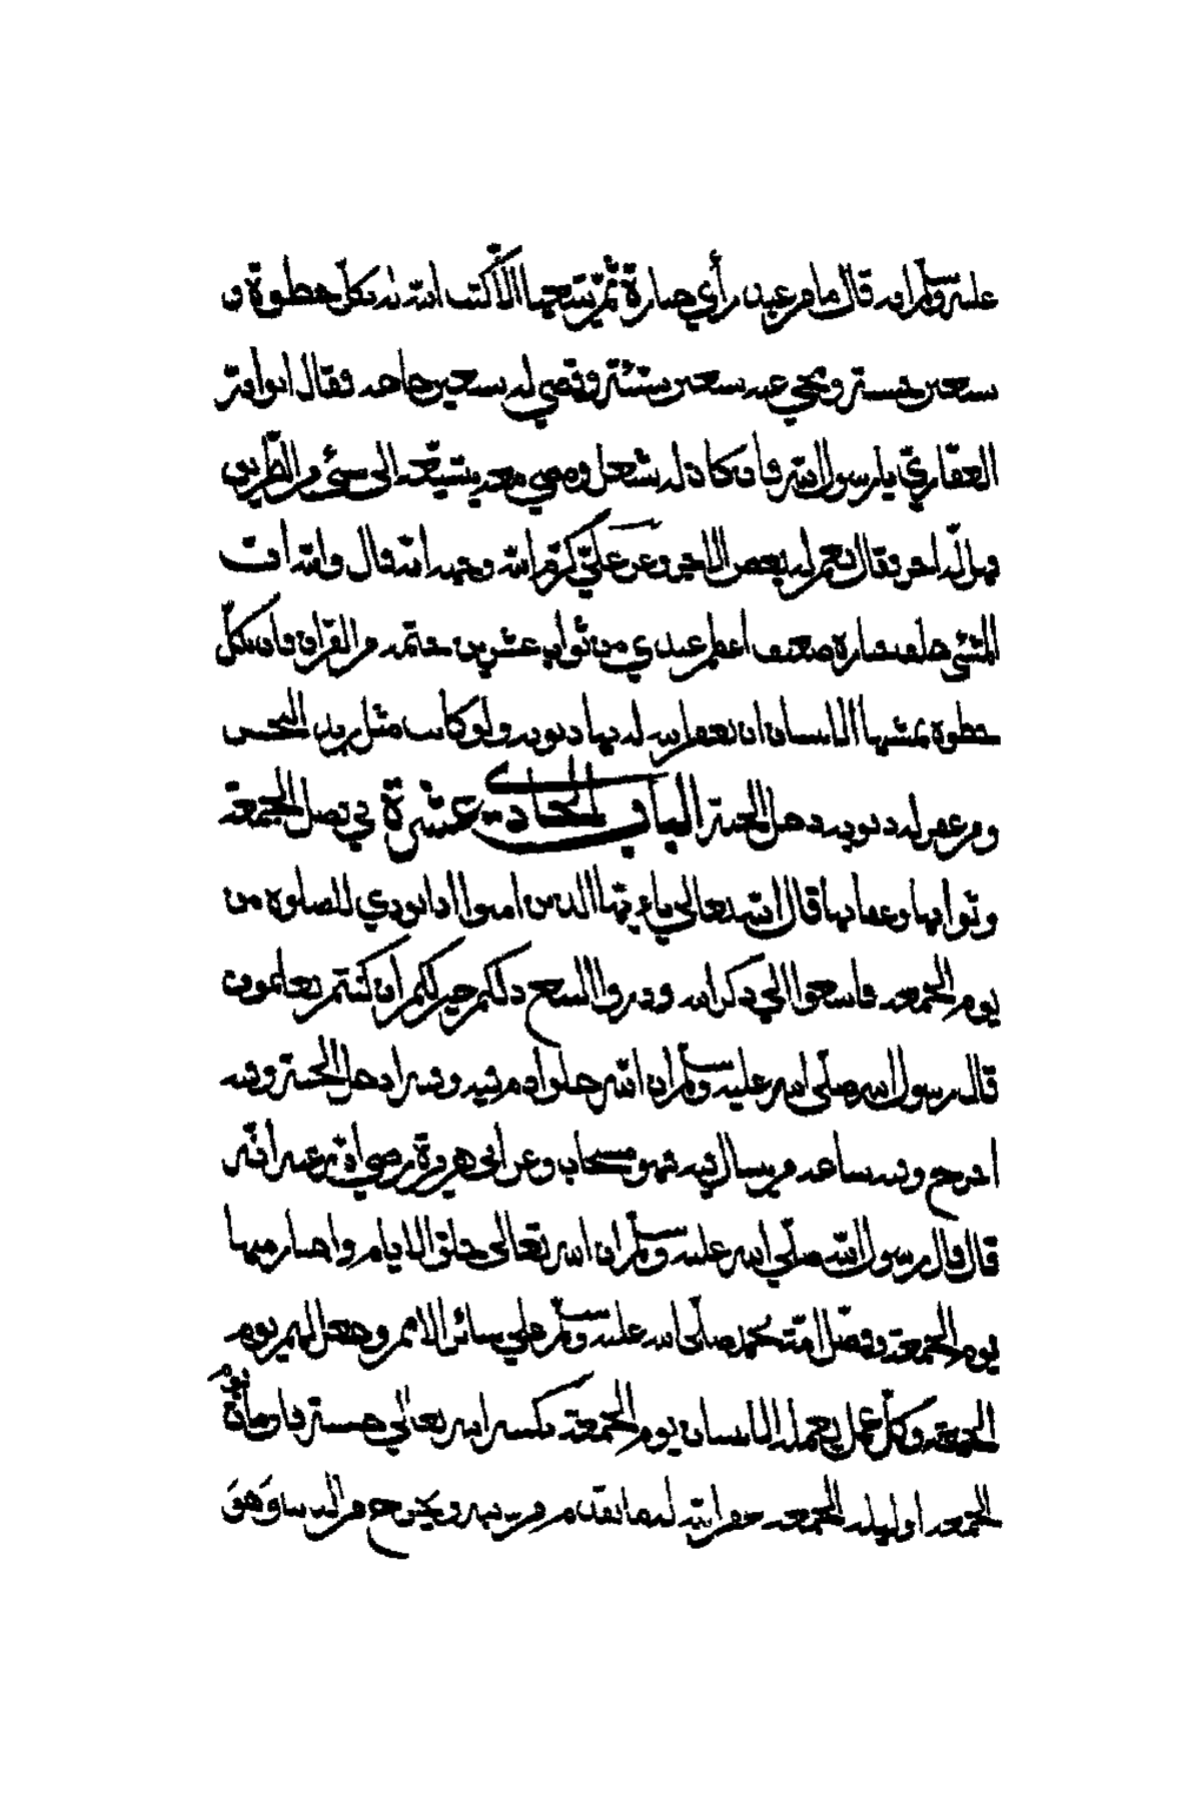 عليه وسلم انه قال ما من عبد رأي جنازة ثم يتبعها الا كتب الله له بكل خطوة
سبعين حسنة ومحي عنه سبعين سيئة وقضي له سبعين حاجة فقال ابو ذر
الغفاري يا رسول الله فان كان له شغل ومضي معه يشيعه الى شئ من الطريق
فهل له اجر فقال نعم له بعض الاجر وعن علي كرم الله وجهه انه قال والله ان
المشي خلف جنازة اعظم عندي من ثواب عشرين ختمة من القران وان بكل
خطوة يمشيها الانسان ان يغفر الله له بها ذنوبه ولو كانت مثل زبد البحر
ومن غفر له ذنوبه دخل الجنة الباب الحادي عشرة في فضل الجمعة
وثوابها قال الله تعالى يا ايها الذين امنوا اذا نودي للصلوة من
يوم الجمعة فاسعوا الى ذكر الله وذروا البيع ذلكم خير لكم ان كنتم تعلمون
قال رسول الله صلى الله عليه وسلم ان الله خلق ادم فيه وفيه ادخل الجنة وفيه
اخرج وفيه ساعة من يسال فيه فهو مستجاب وعن ابى هريرة رضي الله عنه انه
قال قال رسول الله صلي الله عليه وسلم ان الله تعالى خلق الايام واختار منها
يوم الجمعة وفضل امة محمد صلى الله عليه وسلم علي سائر الامم وجعل لهم يوم
الجمعة وكل عمل يعمله الانسان يوم الجمعة يكتب الله تعالي حسنة مات يوم
الجمعة او ليلة الجمعة غفر الله له ما تقدم من ذنبه ويخرج من الدنيا وهو